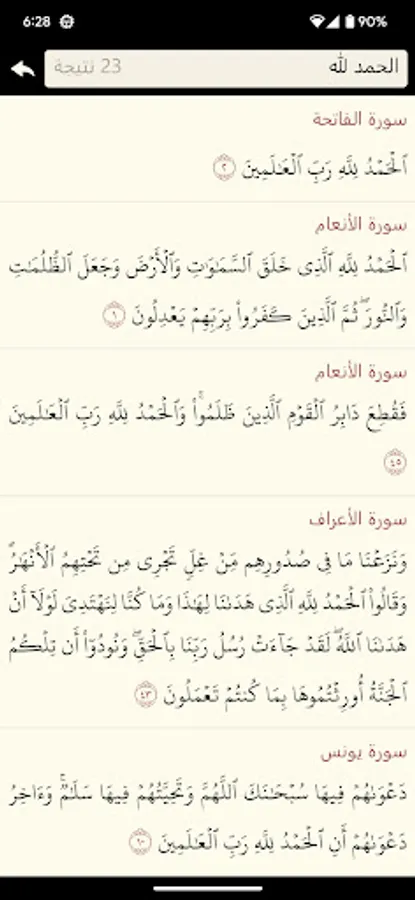 6:28 90%
الحمد لله 23 نتيجة
سورة الفاتحة
ٱلْحَمْدُ لِلَّهِ رَبِّ ٱلْعَـٰلَمِينَ ٢
سورة الأنعام
ٱلْحَمْدُ لِلَّهِ ٱلَّذِى خَلَقَ ٱلسَّمَـٰوَٰتِ وَٱلْأَرْضَ وَجَعَلَ ٱلظُّلُمَـٰتِ
وَٱلنُّورَ ۖ ثُمَّ ٱلَّذِينَ كَفَرُوا۟ بِرَبِّهِمْ يَعْدِلُونَ ١
سورة الأنعام
فَقُطِعَ دَابِرُ ٱلْقَوْمِ ٱلَّذِينَ ظَلَمُوا۟ ۚ وَٱلْحَمْدُ لِلَّهِ رَبِّ ٱلْعَـٰلَمِينَ
٤٥
سورة الأعراف
وَنَزَعْنَا مَا فِى صُدُورِهِم مِّنْ غِلٍّ تَجْرِى مِن تَحْتِهِمُ ٱلْأَنْهَـٰرُ ۖ
وَقَالُوا۟ ٱلْحَمْدُ لِلَّهِ ٱلَّذِى هَدَىٰنَا لِهَـٰذَا وَمَا كُنَّا لِنَهْتَدِىَ لَوْلَآ أَنْ
هَدَىٰنَا ٱللَّهُ ۖ لَقَدْ جَآءَتْ رُسُلُ رَبِّنَا بِٱلْحَقِّ ۖ وَنُودُوٓا۟ أَن تِلْكُمُ
ٱلْجَنَّةُ أُورِثْتُمُوهَا بِمَا كُنتُمْ تَعْمَلُونَ ٤٣
سورة يونس
دَعْوَىٰهُمْ فِيهَا سُبْحَـٰنَكَ ٱللَّهُمَّ وَتَحِيَّتُهُمْ فِيهَا سَلَـٰمٌ ۚ وَءَاخِرُ
دَعْوَىٰهُمْ أَنِ ٱلْحَمْدُ لِلَّهِ رَبِّ ٱلْعَـٰلَمِينَ ١٠